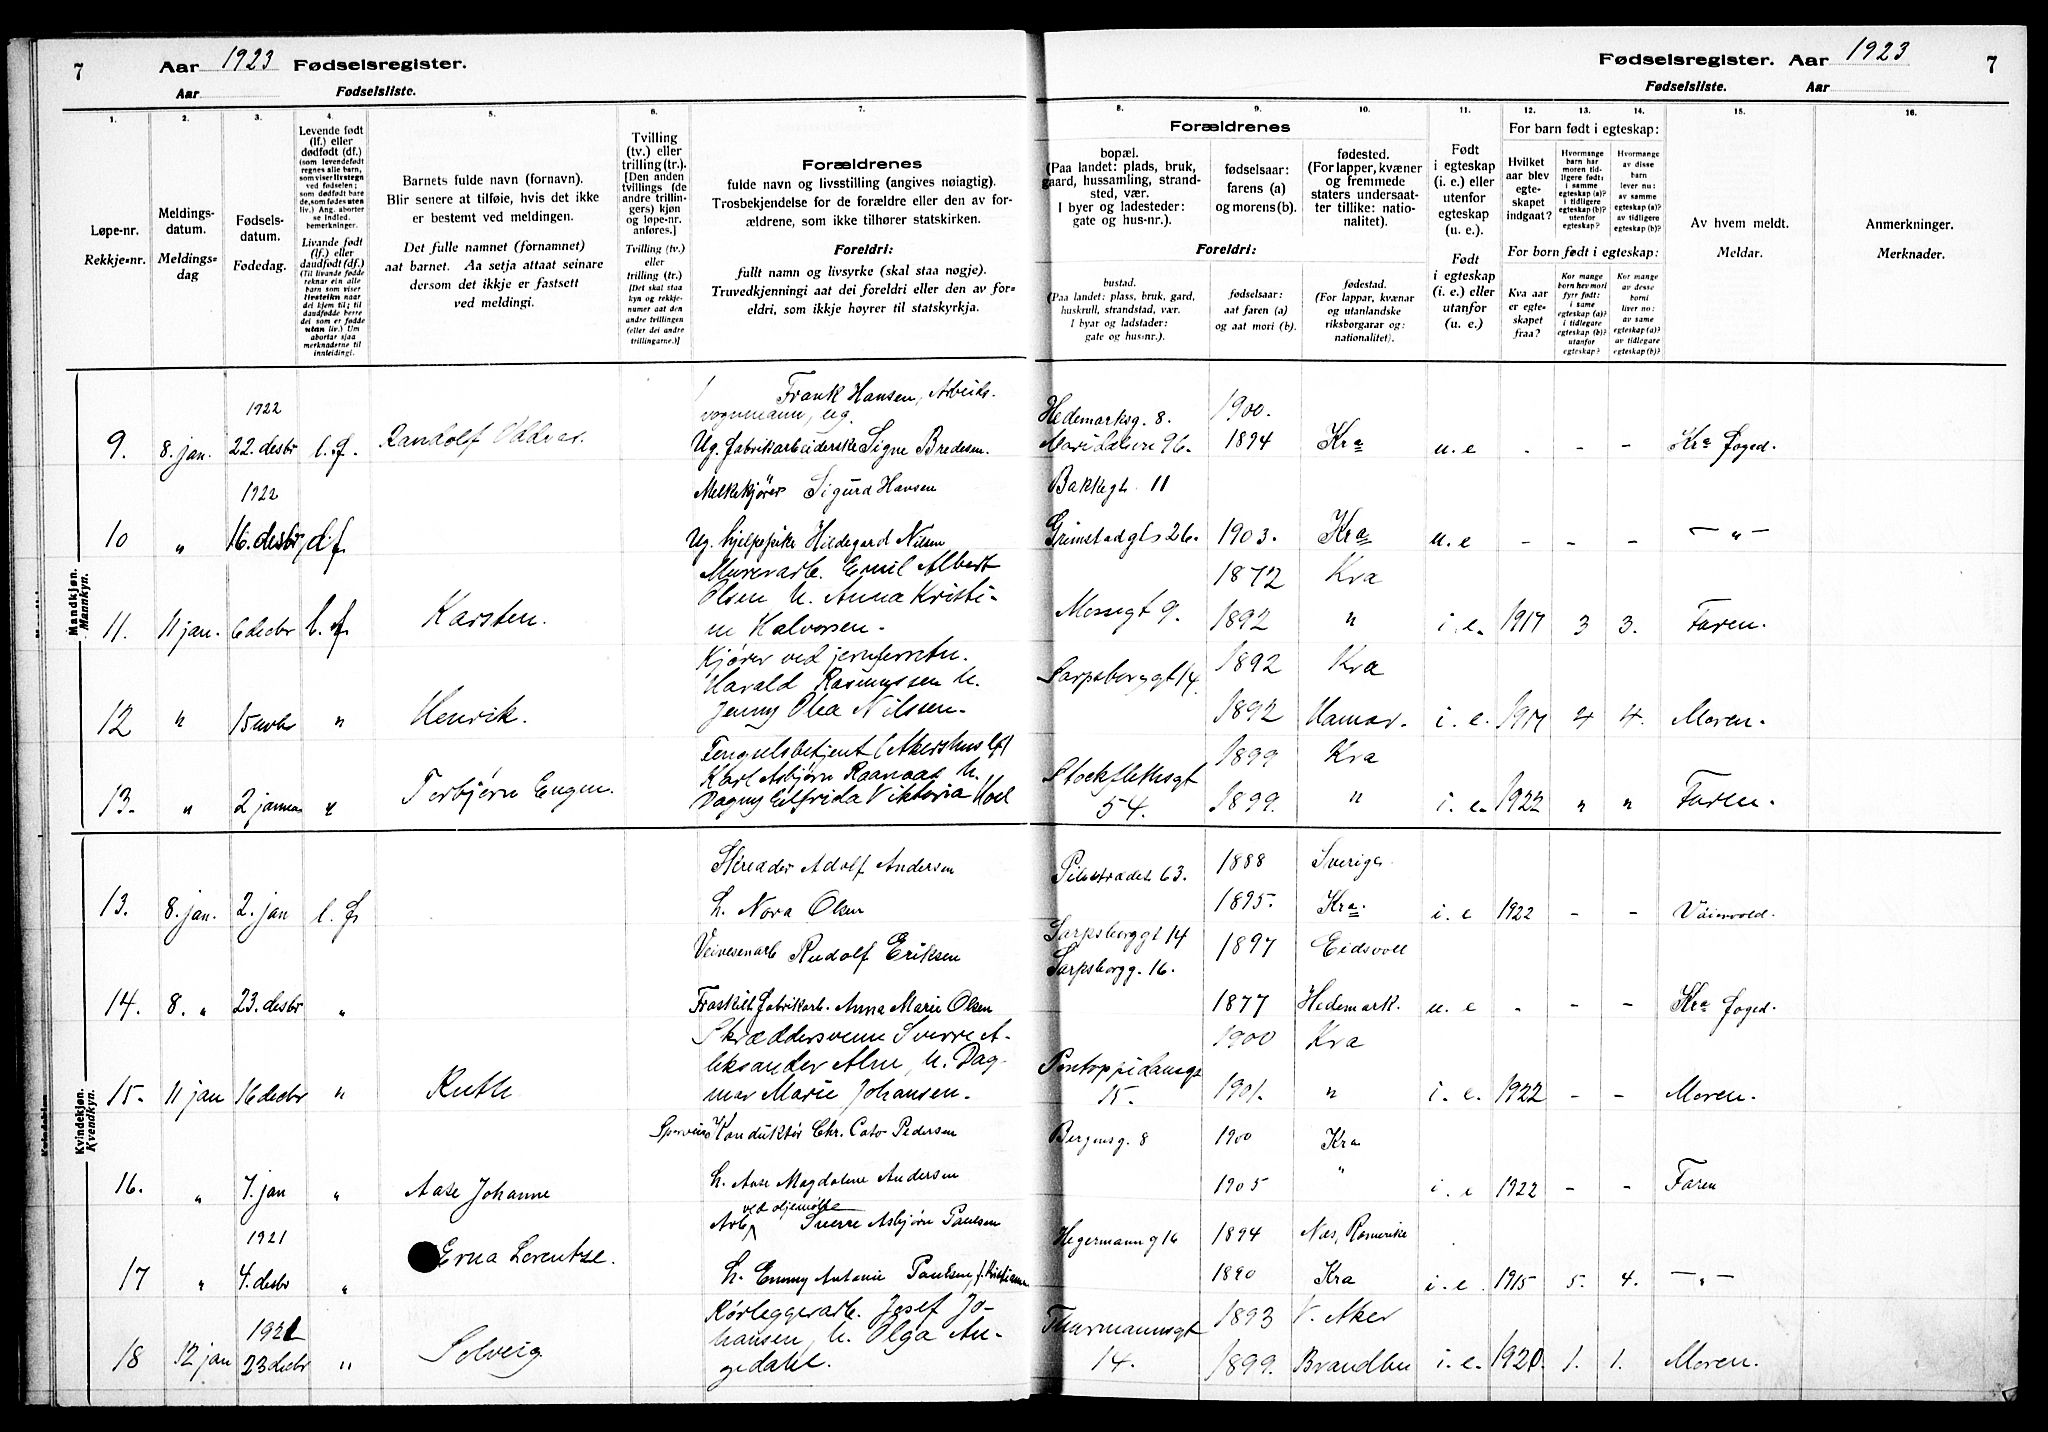 7 Aar 1923 Fødselsregister.
Aar Fødselsliste.
Fødselsregister. Aar 1923 7
Fødselsliste. Aar
1. 2. 3. 4. 5. 6. 7. 8. 9. 10. 11. 12. 13. 14. 15. 16.
Løpe-nr.
Rekkje-nr.
Meldings-
datum.
Meldings-
dag
Fødsels-
datum.
Fødedag.
Levende født
(lf.) eller
dødfødt (df.)
(som levendefødt
regnes alle barn,
som viser livstegn
ved fødselen;
som dødfødt bare
de, som fødes uten
liv.) Ang. aborter
se indled.
bemerkninger.
Livande født
(lf.) eller
daudfødt (df.)
(Til livande fødde
reknar ein alle
born som viser
livsteikn naar
dei kjem til; til
daudfødde berre
dei som er fødde
utan liv.) Um
abortar sjaa
merknaderne til
innleidingi.
Barnets fulde navn (fornavn).
Blir senere at tilføie, hvis det ikke
er bestemt ved meldingen.
Det fulle namnet (fornamnet)
aat barnet. Aa setja attaat seinare
dersom det ikkje er fastsett
ved meldingi.
Tvilling
(tv.) eller
trilling (tr.).
[Den anden
tvillings (de
andre trillin-
gers) kjøn
og løpe-nr.
anføres.]
Tvilling (tv.)
eller
trilling (tr.)
[Det skal staa
kyn og rekkje-
numer aat den
andre tvillingen
(eller dei andre
trillingarne.)]
Forældrenes
fulde navn og livsstilling (angives nøiagtig).
Trosbekjendelse for de forældre eller den av for-
ældrene, som ikke tilhører statskirken.
Foreldri:
fullt namn og livsyrke (skal staa nøgje).
Truvedkjenningi aat dei foreldri eller den av for-
eldri, som ikkje høyrer til statskyrkja.
Forældrenes
bopæl.
(Paa landet: plads, bruk,
gaard, hussamling, strand-
sted, vær.
I byer og ladesteder:
gate og hus-nr.).
fødselsaar:
farens (a)
og morens (b).
fødested.
(For lapper, kvæner
og fremmede
staters undersaat-
ter tillike: natio-
nalitet).
Foreldri:
bustad.
(Paa landet: plass, bruk, gard,
huskrull, strandstad, vær.
I byar og ladstader:
gate og hus-nr.).
fødselsaar:
aat faren (a)
og aat mori (b).
fødestad.
(For lappar, kvænar
og utanlandske
riksborgarar og:
nationalitet).
Født
i egteskap
(i. e.) eller
utenfor
egteskap
(u. e.).
Født
i egteskap
(i. e.) eller
utanfor
(u. e.).
For barn født i egteskap:
Hvilket
aar blev
egte-
skapet
indgaat?
Hvormange
barn har
moren tid-
ligere født:
i samme
egteskap (a)?
i tidligere
egteskap (b)?
utenfor
egteskap?
Hvormange
av disse
barn
lever nu:
av samme
egteskap (a)?
av tidligere
egteskap (b)?
For born født i egteskap:
Kva aar
er egte-
skapet
fraa?
Kor mange
born hev mori
fyrr født:
i same
egteskap (a)?
i tidlegare
egteskap (b)?
utanfor
egteskap?
Kor mange
av desse
borni
liver no:
av same
egteskap (a)?
av tidlegare
egteskap (b)?
Av hvem meldt.
Meldar.
Anmerkninger.
Merknader.
Mandkjøn.
Mannkyn.
Frank Hansen, Arbeids-
vognmann, ug. Hedemarksg. 8. 1900.
1922
9. 8. jan. 22. desbr l. f. Randolf Oddvar. Ug. fabrikarbeiderske Signe Bredesen. Maridalsvn 96. 1894 Kra u. e - - - Kra foged.
1922 Melkekjører Sigurd Hansen Bakkegt. 11
10 " 16. desbr d. f. Ug. hjelpepike Hildegard Nilsen Grimstadgt. 26. 1903. Kra u. e - - - — " —
Murerarb. Emil Albert 1872 Kra
Olsen h. Anna Kristi-
11. 11 jan. 6 decbr l. f. Karsten. ne Halvorsen. Mossegt 9. 1892 " i. e. 1917 3 3. Faren.
Kjører ved jernferretn.
Harald Rasmussen h. Sarpsborggt 14. 1892 Kra
12 " 15 novbr " Henrik. Jenny Olea Nilssen. 1892 Hamar. i. e. 1917 4 4. Moren.
Fengselsbetjent (Akershus lf)
Karl Asbjørn Raanaas h. Stockflethsgt 1899 Kra
13. " 2 januar " Torbjørn Eugen. Dagny Elfrida Viktoria Hoel 54. 1899. " i. e. 1922 " " Faren.
Kvindekjøn.
Kvendkyn.
Adolf Andersen Pilestrædet 63. 1888 Sverige
13. 8. jan. 2. jan l. f. h. Nora Olsen 1895. Kra. i. e 1922 - -
Sarpsborggt 14
Veivesenarb Rudolf Eriksen Sarpsborgg. 16. 1897 Eidsvoll
14. 8. " 23. desbr " Fraskilt fabrikarb. Anna Marie Olsen 1877 Hedemark. u. e - - - Kra foged.
Skræddersvenn Sverre A- 1900 Kra
leksander Alm, h. Dag-
15. 11 jan 16 decbr " Ruth mar Marie Johansen. Pontoppidansgt 15. 1901. " i. e. 1922 - - Moren.
Sporveis Konduktør Chr. Cato Pedersen Bergensg. 8 1900 Kra
16. " 7. jan " Aase Johanne h. Aase Magdalene Andersen 1905 " i. e 1922 - - Faren
1921 Arb ved oljemølle Sverre Asbjørn Paulsen Hegermannsg 16 1894 Næs, Romerike
17 " 4. desbr " Erna Lorentze. h. Emmy Antonie Paulsen, f. Kristiansen 1890 Kra i. e. 1915 5. 4. — " —
Rørleggerarb. Josef Jo- 1893 V. Aker
1921
18 12 jan 23 decbr " Solveig hansen, h. Olga An-
gedahl. Thurmannsgt 14. 1899. Brandbu i. e. 1920. 1. 1. Moren.